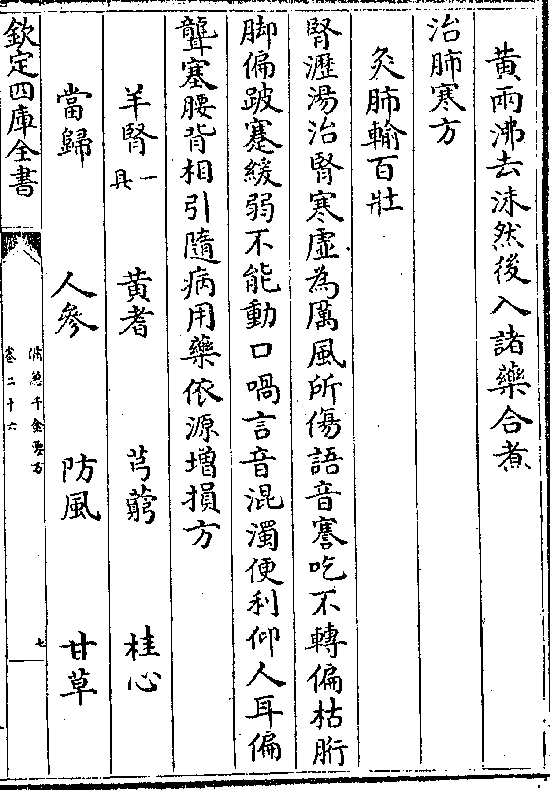 黄兩沸去沫然後入諸藥合煮
治肺寒方
灸肺輸百壯
腎瀝湯治腎寒虛為厲風所傷語音謇吃不轉偏枯胻
脚偏跛蹇緩弱不能動口喎言音混濁便利仰人耳偏
聾塞腰背相引隨病用藥依源增損方
羊腎一具 黄耆 芎藭 桂心
當歸 人參 防風 甘草
欽定四庫全書
備急千金要方
卷二十六
七